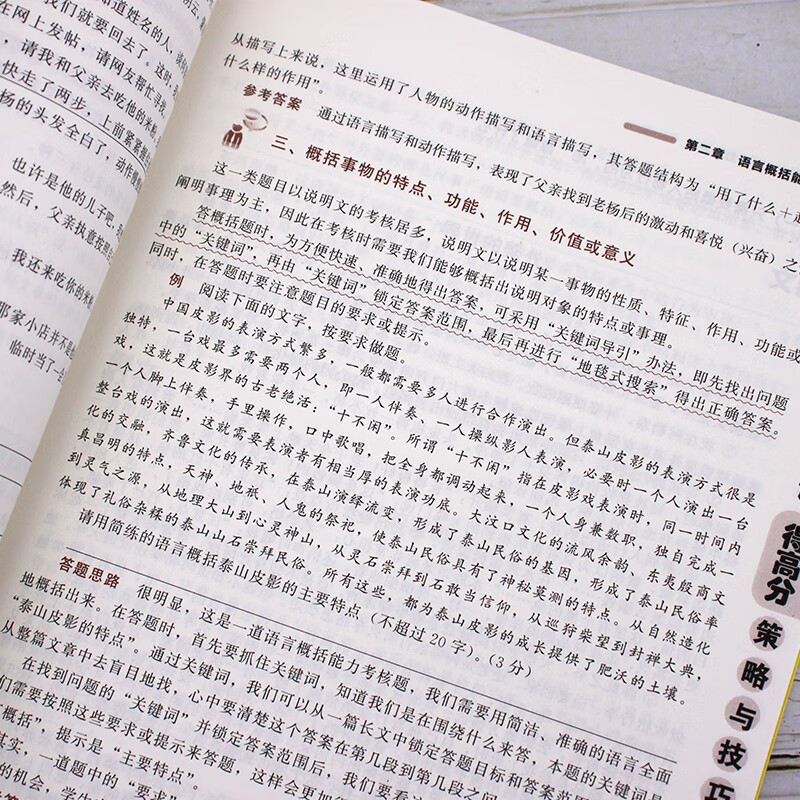 道姓名的人，
们就要回去了。这时，
在网上发帖，请网友帮忙寻找
，请我和父亲去吃他的米
快走了两步，上前紧紧
杨的头发全白了，动作
也许是他的儿子吧，
然后，父亲执意按照
我还来吃你的米
那家小店并不是
临时当了一会
第二章 语言概括能
从描写上来说，这里运用了人物的动作描写和语言描写，其答题结构为“用了什么＋
什么样的作用”。
参考答案 通过语言描写和动作描写，表现了父亲找到老杨后的激动和喜悦（兴奋）之
三、概括事物的特点、功能、作用、价值或意义
这一类题目以说明文的考核居多，说明文以说明某一事物的性质、特征、作用、功能或
阐明事理为主，因此在考核时需要我们能够概括出说明对象的特点或事理。
答概括题时，为方便快速、准确地得出答案，可采用“关键词导引”办法，即先找出问题
中的“关键词”，再由“关键词”锁定答案范围，最后再进行“地毯式搜索”得出正确答案。
同时，在答题时要注意题目的要求或提示。
例 阅读下面的文字，按要求做题。
中国皮影的表演方式繁多，一般都需要多人进行合作演出。但泰山皮影的表演方式很是
独特，一台戏最多需要两个人，即一人伴奏、一人操纵影人表演，必要时一个人演出一台
戏，这就是皮影界的古老绝活：“十不闲”。所谓“十不闲”指在皮影戏表演时，同一时间内
一个人脚上伴奏，手里操作，口中歌唱，把全身都调动起来，一个人身兼数职，独自完成一
整台戏的演出，这就需要表演者有相当厚的表演功底。大汶口文化的流风余韵、东夷殷商文
化的交融，齐鲁文化的传承，在泰山演绎流变，形成了泰山民俗的基因，形成了泰山民俗率
真昌明的特点，天神、地祇、人鬼的祭祀，使泰山民俗具有了神秘莫测的特点。从自然造化
到灵气之源，从地理大山到心灵神山，从灵石崇拜到石敢当信仰，从巡狩柴望到封禅大典，
体现了礼俗杂糅的泰山山石崇拜民俗。所有这些，都为泰山皮影的成长提供了肥沃的土壤。
请用简练的语言概括泰山皮影的主要特点（不超过20字）。（3分）
答题思路 很明显，这是一道语言概括能力考核题，我们需要用简洁、准确的语言全面
地概括出来。在答题时，首先要抓住关键词，知道我们是在围绕什么来答，本题的关键词是
“泰山皮影的特点”。通过关键词，我们可以从一篇长文中锁定答题目标和答案范围
从整篇文章中去盲目地找，心中要清楚这个答案在第几段到第几段之间
在找到问题的“关键词”并锁定答案范围后，我们要看
们需要按照这些要求或提示来答题，这样会更加
概括”，提示是“主要特点”。
其实，一道题中的“要求”
的机会，学生
得高分
策略与技巧